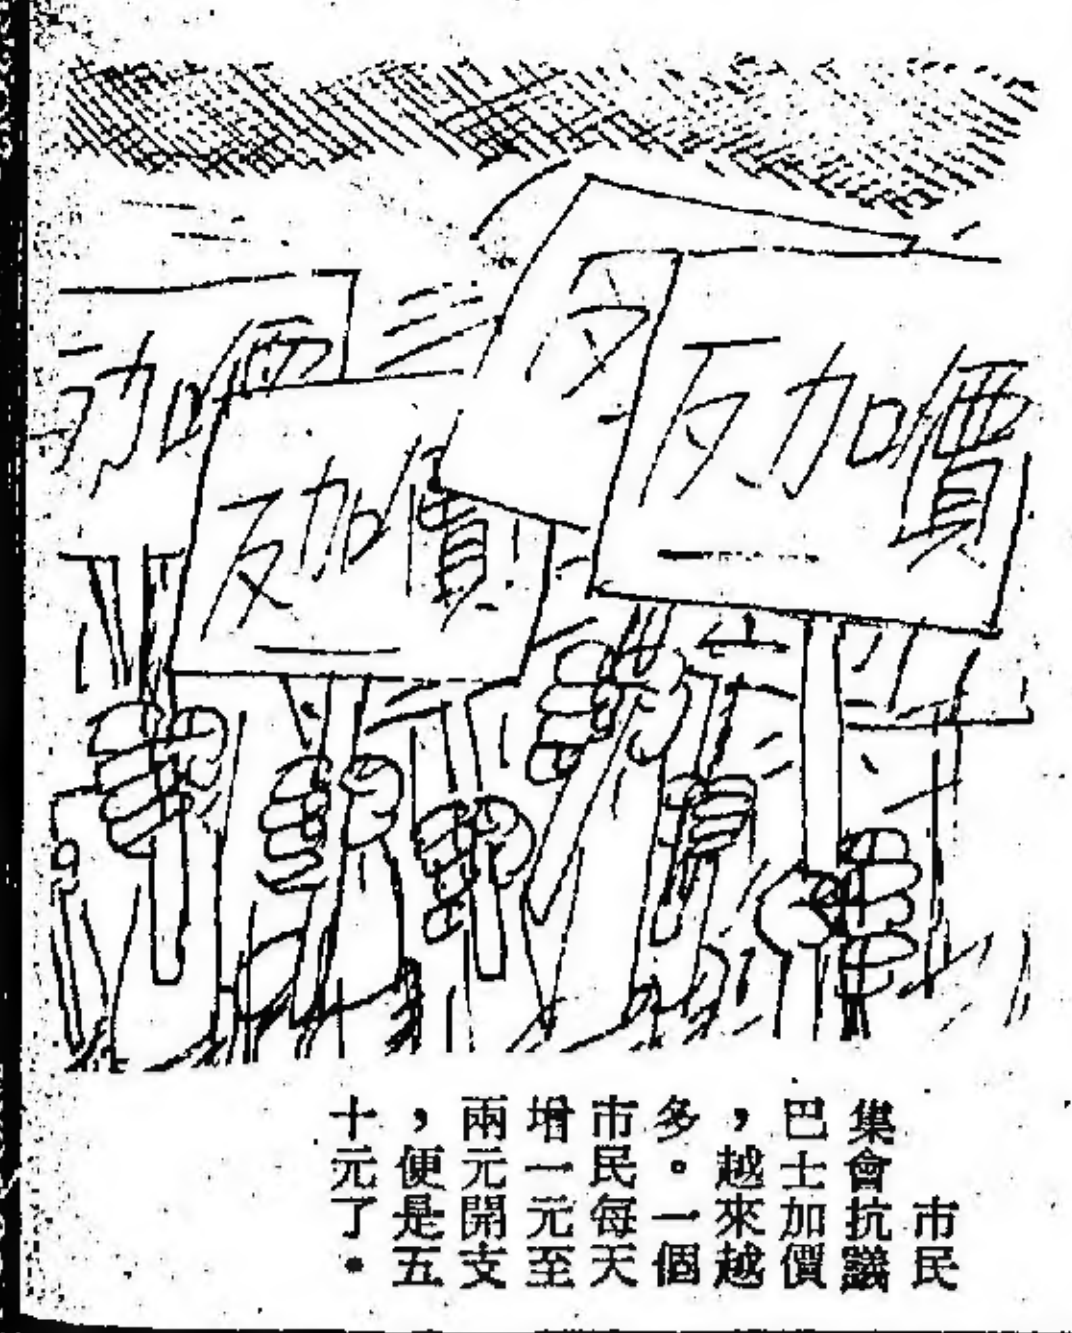 加價
反加價
反
反加價
市民
集會抗議
巴士加價
，越來越
多。一個
市民每天
增一元至
兩元開支
，便是五
十元了。